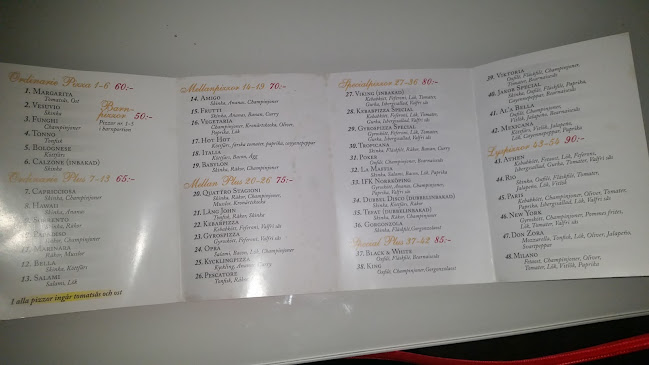 Ordinarie Pizza 1-6 60:-
1. Margarita
Tomatsås, Ost
2. Vesuvio
Skinka
3. Funghi
Champinjoner
4. Tonno
Tonfisk
5. Bolognese
Köttfärs
6. Calzone (inbakad)
Skinka
Barn-
pizzor
Pizzor nr 1-5
i barnportion
50:-
Ordinarie Plus 7-13 65:-
7. Capricciosa
Skinka, Champinjoner
8. Hawaii
Skinka, Ananas
Skinka, Räkor
Räkor, Champinjoner
11. Marinara
Räkor, Musslor
12. Bella
Skinka, Köttfärs
13. Salami
Salami, Lök
I alla pizzor ingår tomatsås och ost
Mellanpizzor 14-19 70:-
14. Amigo
Skinka, Ananas, Champinjoner
15. Frutti
Skinka, Ananas, Banan, Curry
16. Vegetaria
Champinjoner, Kronärtskocka, Oliver,
Paprika, Lök
17. Hot Hot
Köttfärs, färska tomater, paprika, cayennepeppar
18. Italia
Köttfärs, Bacon, Ägg
19. Babylon
Skinka, Räkor, Champinjoner
Mellan Plus 20-26 75:-
20. Quattro Stagioni
Skinka, Räkor, Champinjoner
Musslor, Kronärtskocka
21. Lång John
Tonfisk, Räkor, Skinka
22. Kebabpizza
Kebabkött, Feferoni, Valfri sås
23. Gyrospizza
Gyroskött, Feferoni, Valfri sås
24. Opra
Salami, Bacon, Lök, Champinjoner
25. Kycklingpizza
Kyckling, Ananas, Curry
26. Pescatore
Tonfisk, Räkor
Specialpizzor 27-36 80:-
27. Viking (inbakad)
Kebabkött, Feferoni, Lök, Tomater
Gurka, Isbergssallad, Valfri sås
28. Kebabpizza Special
Kebabkött, Feferoni, Lök, Tomater,
Gurka, Isbergssallad, Valfri sås
29. Gyrospizza Special
Gyroskött, Feferoni, Lök, Tomater,
Gurka, Isbergssallad, Valfri sås
30. Tropicana
Skinka, Fläskfilé, Ananas, Banan, Curry
31. Poker
Oxfilé, Champinjoner, Bearnaisesås
32. La Maffia
Skinka, Salami, Bacon, Lök, Paprika
33. IFK Norrköping
Gyroskött, Ananas, Champinjoner,
Paprika, Valfri sås
34. Dubbel Disco (dubbelinbakad)
Skinka, Köttfärs, Räkor
35. Tefat (dubbelinbakad)
Skinka, Räkor, Champinjoner
36. Gorgonzola
Skinka, Fläskfilé, Gorgonzolaost
Special Plus 37-42 85:-
37. Black & White
Oxfilé, Fläskfilé, Bearnaisesås
38. King
Oxfilé, Champinjoner, Gorgonzolaost
39. Viktoria
Oxfilé, Fläskfilé, Champinjoner,
Tomater, Bearnaisesås
40. Jakob Special
Skinka, Oxfilé, Fläskfilé, Paprika,
Cayennepeppar, Bearnaisesås
Oxfilé, Champinjoner,
Vitlök, Jalapeno, Bearnaisesås
42. Mexicana
Köttfärs, Vitlök, Jalapeno,
Lök, Cayennepeppar, Paprika
Lyxpizzor 43-54 90:-
43. Athen
Kebabkött, Fetaost, Lök, Feferoni,
Isbergssallad, Tomater, Valfri sås
44. Rio
Skinka, Oxfilé, Fläskfilé, Tomater,
Jalapeño, Lök, Vitlök
45. Paris
Kebabkött, Champinjoner, Oliver, Tomater,
Paprika, Isbergssallad, Valfri sås
46. New York
Gyroskött, Champinjoner, Pommes frites,
Lök, Tomater, Valfri sås
47. Don Zora
Mozzarella, Tonfisk, Lök, Oliver, Jalapeño,
Svartpeppar
48. Milano
Fetaost, Champinjoner, Oliver,
Tomater, Lök, Vitlök, Paprika